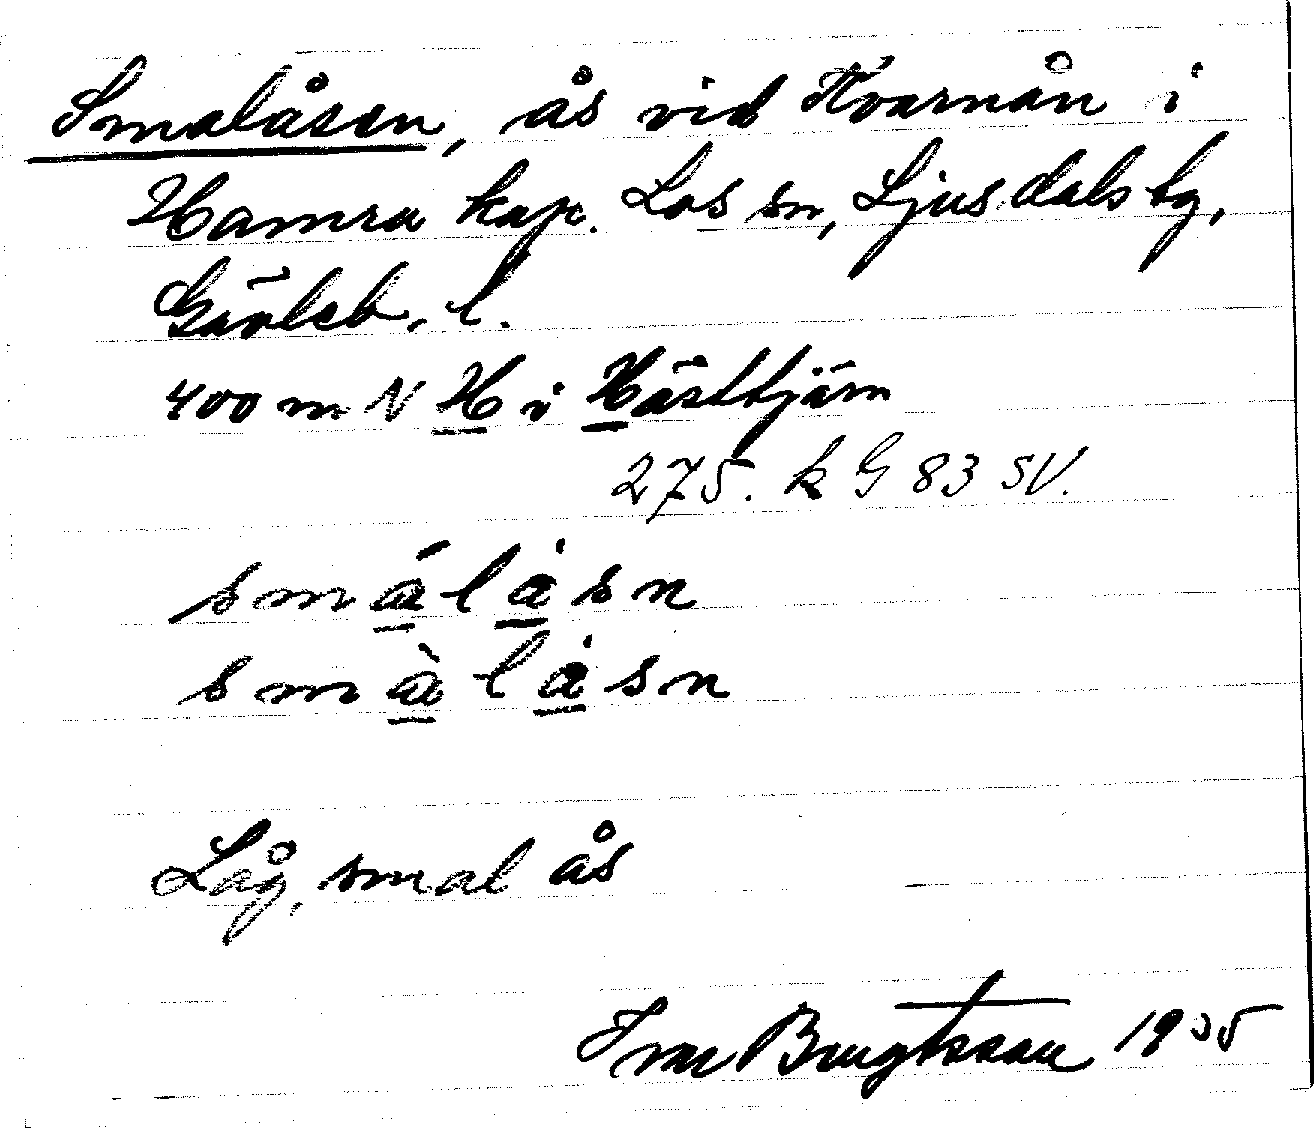 Smalåsen, ås vid Kvarnån i
Hamra kap. Los sn, Ljusdals tg,
Gävleb. l.
400 m N H i Hästtjärn
275. k G 83 SV.
smáläsn
smàläsn
Låg, smal ås
Ivar Bengtsson 1935